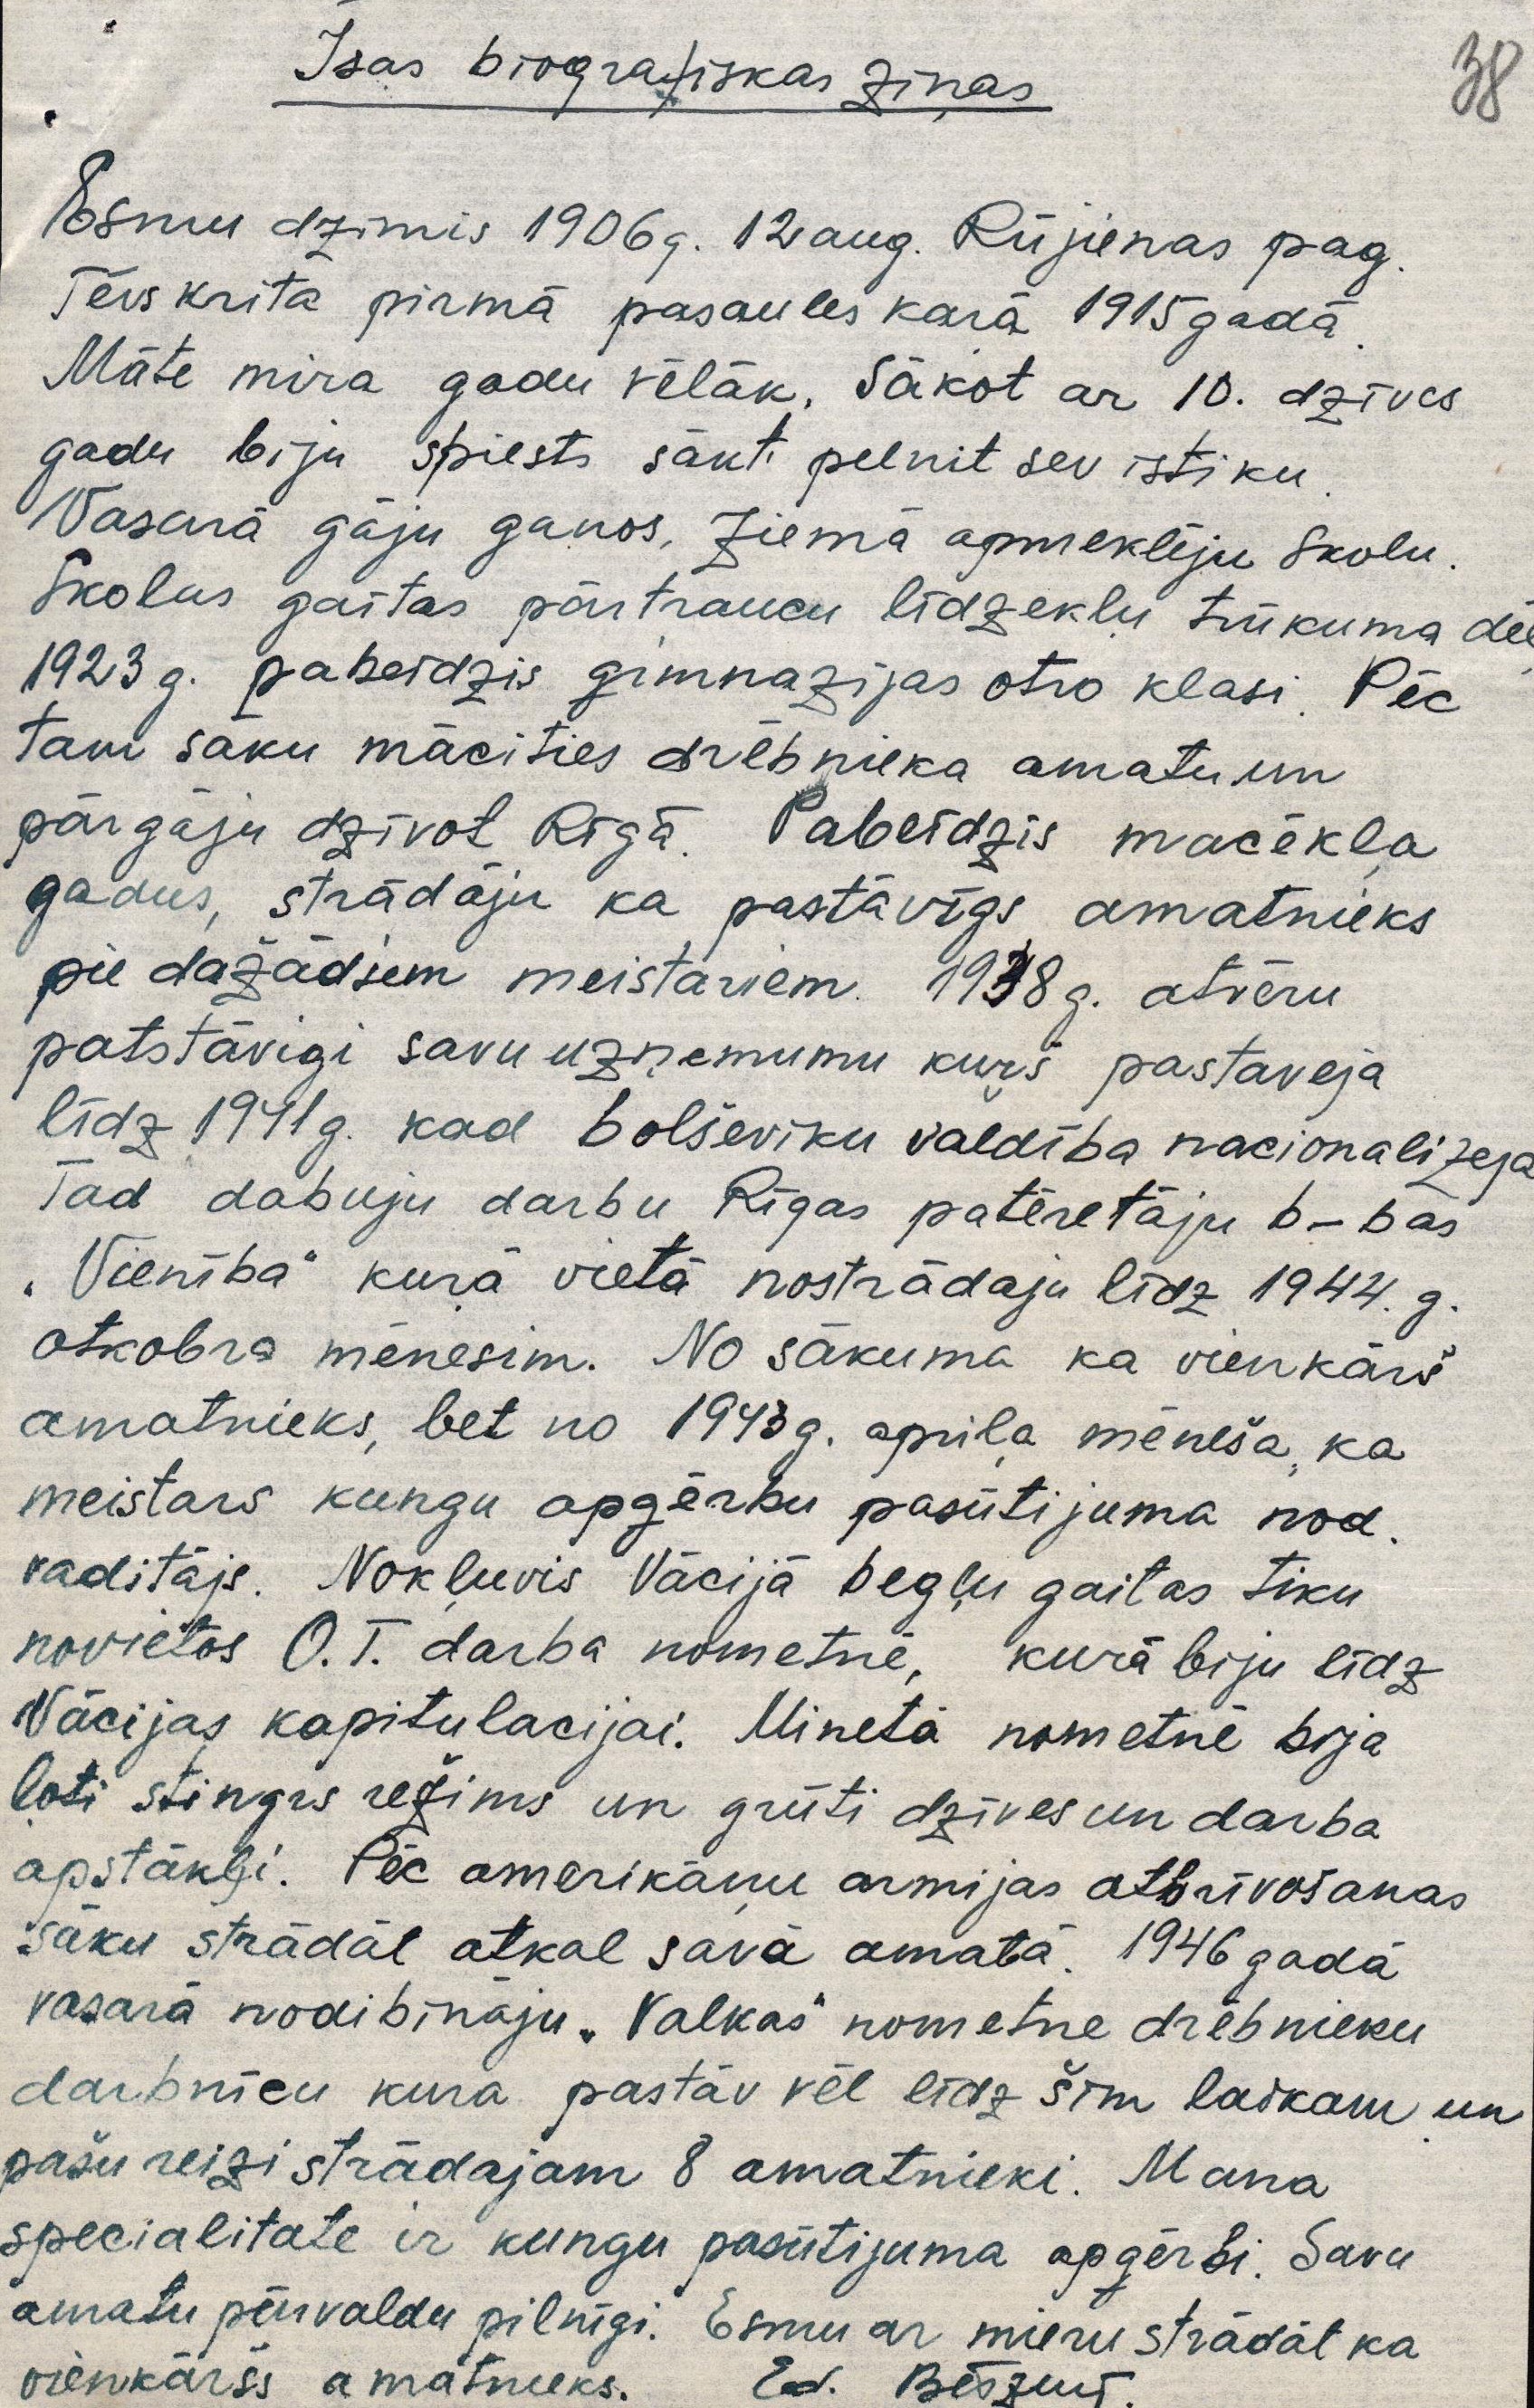 Īsas biografiskas ziņas
38
Esmu dzimis 1906 g. 12 aug. Rūjienas pag.
Tēvs krita pirmā pasaules karā 1915 gadā.
Māte mira gadu vēlāk. Sākot ar 10. dzīves
gadu biju spiests sākt pelnit sev istiku.
Vasarā gāju ganos, ziemā apmeklēju skolu.
Skolas gaitas pārtraucu līdzekļu trūkuma dēļ
1923 g. pabeidzis gimnazijas otro klasi. Pēc
tam sāku mācities drēbnieka amatu un
pārgāju dzīvot Rīgā. Pabeidzis macēkļa
gadus, strādāju ka pastāvīgs amatnieks
pie dažādiem meistariem. 1938 g. atvēru
patstāvigi savu uzņemumu kuŗš pastaveja
līdz 1941 g. kad bolševiku valdība nacionalizeja
Tad dabuju darbu Rīgas patēretāju b-bas
„Vienība" kuŗā vietā nostrādaju līdz 1944. g.
otkobra mēnesim. No sākuma ka vienkārš
amatnieks, bet no 1943 g. apriļa mēneša, ka
meistars kungu apģērbu pasūtijuma nod.
vaditājs. Nokļuvis Vācijā begļu gaitas tiku
novietos O.T. darba nometnē, kurā biju līdz
Vācijas kapitulacijai. Minetā nometnē bija
ļoti stingrs režims un grūti dzīves un darba
apstākļi. Pēc amerikāņu armijas atbrīvošanas
sāku strādāt atkal savā amatā. 1946 gadā
vasarā nodibināju „Valkas" nometne drēbnieku
darbnīcu kura pastāv vēl līdz šim laikam un
pašu reizi strādajam 8 amatnieki. Mana
specialitate ir kungu pasūtijuma apģērbi. Savu
amatu pārvaldu pilnīgi. Esmu ar mieru strādāt ka
vienkāršs amatnieks. Ed.